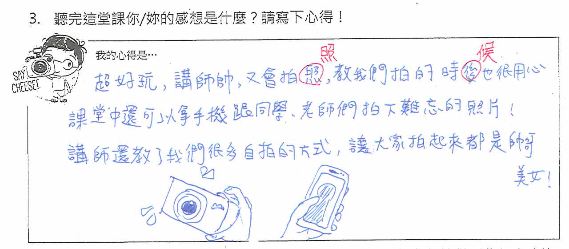 3. 聽完這堂課你/妳的感想是什麼？請寫下心得！
我的心得是…
SAY CHEESE!
照 候
超好玩，講師帥，又會拍照，教我們拍的時後也很用心
課堂中還可以拿手機跟同學、老師們拍下難忘的照片！
講師還教了我們很多自拍的方式，讓大家拍起來都是帥哥
美女！